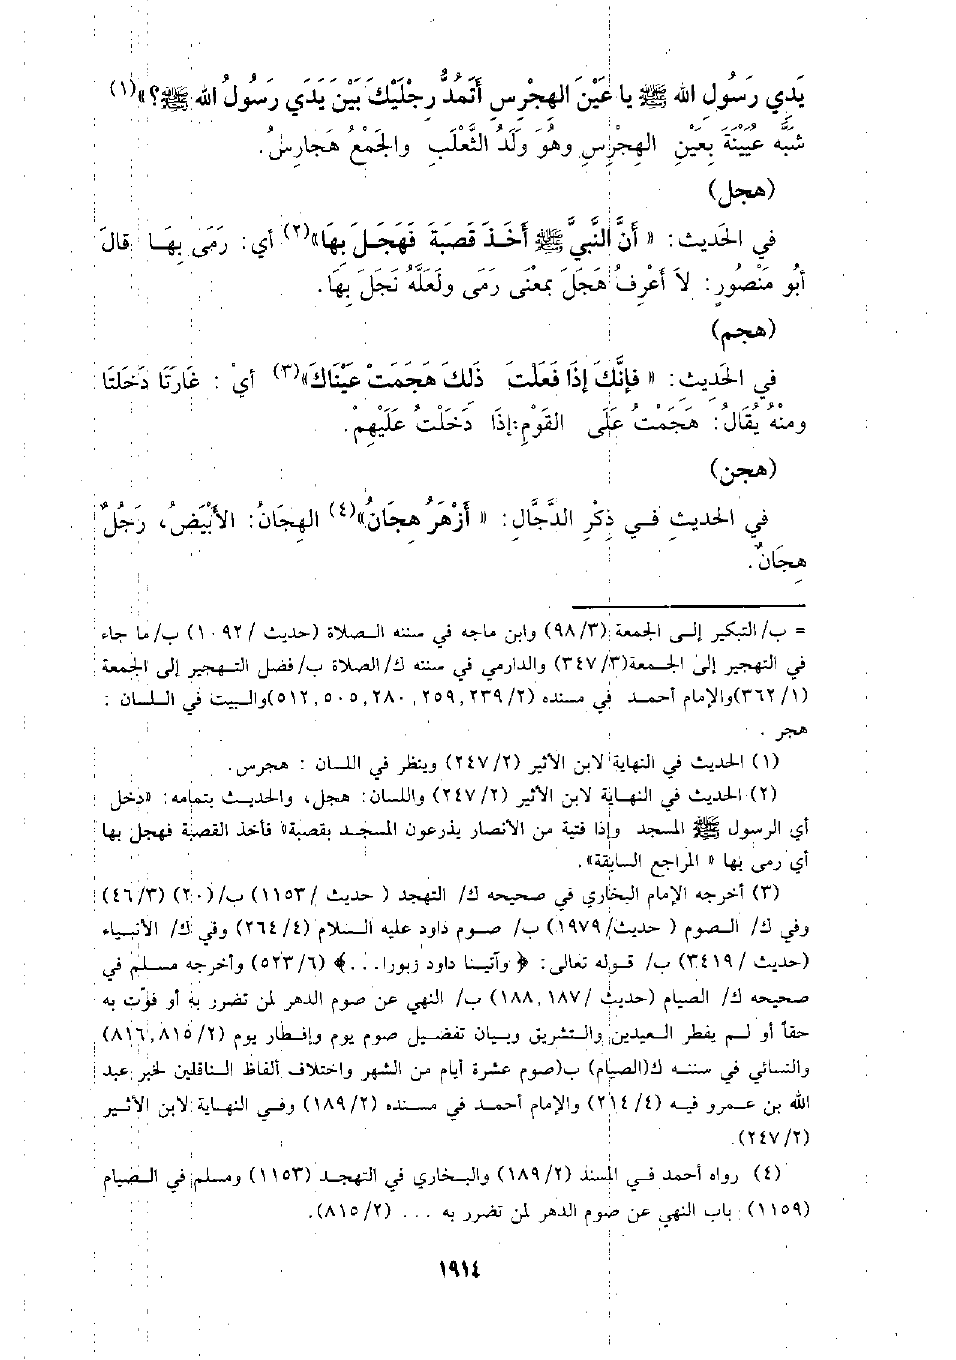 يَدِي رَسُولِ الله ﷺ يا عَيْنَ الهِجْرِسِ أَتَمُدُّ رِجْلَيْكَ بَيْنَ يَدَي رَسُولُ الله ﷺ؟»(١)
شبَّه عُيَيْنَةَ بِعَيْنِ الهِجْرِسِ وهُوَ وَلَدُ الثَّعْلَبِ والجَمْعُ هَجارِسُ.
(هجل)
في الحَديث: « أَنَّ النَّبيَّ ﷺ أَخَذَ قَصَبَةَ فَهَجَلَ بِهَا»(٢) أي: رَمَى بِهَا قالَ
أبُو مَنْصُورٍ: لاَ أَعْرِفُ هَجَلَ بمعْنَى رَمَى ولَعَلَّهُ نَجَلَ بِهَا.
(هجم)
في الحَدِيث: « فإنَّكَ إذَا فَعَلَتَ ذَلِكَ هَجَمَتْ عَيْنَاكَ»(٣) أيْ : غَارَتَا دَخَلتَا
ومنْهُ يُقَالُ: هَجَمْتُ عَلَى القَوْمِ:إذَا دَخَلْتُ عَلَيْهِمْ.
(هجن)
في الحديثِ فـي ذِكْرِ الدَّجَّالِ: « أَزْهَرُ هِجَانُ»(٤) الهِجَانُ: الأَبْيَضُ، رَجُلٌ
هِجَانٌ.
= ب/ التبكير إلـى الجمعة (٩٨/٣) وابن ماجه في سننه الـصلاة (حديث / ١٠٩٢) ب/ ما جاء
في التهجير إلى الجـمعة(٣٤٧/٣) والدارمي في سننه ك/ الصلاة ب/ فضل التـهجير إلى الجمعة
(٣٦٢/١)والإمام أحمـد في مسنده (٢٣٩/٢, ٢٥٩, ٢٨٠, ٥٠٥, ٥١٢)والـبيت في اللـسان :
هجر .
(١) الحديث في النهاية لابن الأثير (٢٤٧/٢) وينظر في اللسان : هجرس.
(٢) الحديث في النهـاية لابن الأثير (٢٤٧/٢) واللسان: هجل، والحديث بتمامه: «دخل
أي الرسول ﷺ المسجد وإذا فتية من الأنصار يذرعون المسجد بقصبة» فأخذ القصبة فهجل بها
أي رمى بها « المراجع السابقة».
(٣) أخرجه الإمام البخاري في صحيحه ك/ التهجد ( حديث / ١١٥٣) ب/(٢٠) (٤٦/٣)
وفي ك/ الـصوم ( حديث/ ١٩٧٩) ب/ صـوم داود عليه الـسلام (٢٦٤/٤) وفي ك/ الأنبـياء
(حديث / ٣٤١٩) ب/ قـوله تعالى: ﴿ وآتيـنا داود زبورا...﴾ (٥٢٣/٦) وأخرجه مسلـم في
صحيحه ك/ الصيام (حديث / ١٨٧, ١٨٨) ب/ النهي عن صوم الدهر لمن تضرر به أو فوّت به
حقاً أو لـم يفطر الـعيدين والـتشريق وبيـان تفضيـل صوم يوم وإفـطار يوم (٨١٥/٢, ٨١٦)
والنسائي في سننـه ك(الصيام) ب(صوم عشرة أيام من الشهر واختلاف ألفاظ الناقلين لخبر عبد
الله بن عـمرو فيـه (٢١٤/٤) والإمام أحمـد في مسـنده (١٨٩/٢) وفـي النهـاية لابن الأثـير
(٢٤٧/٢).
(٤) رواه أحمد فـي المسند (١٨٩/٢) والبـخاري في التهجـد (١١٥٣) ومسلـم في الـصيام
(١١٥٩) باب النهي عن صوم الدهر لمن تضرر به ... (٨١٥/٢).
١٩١٤